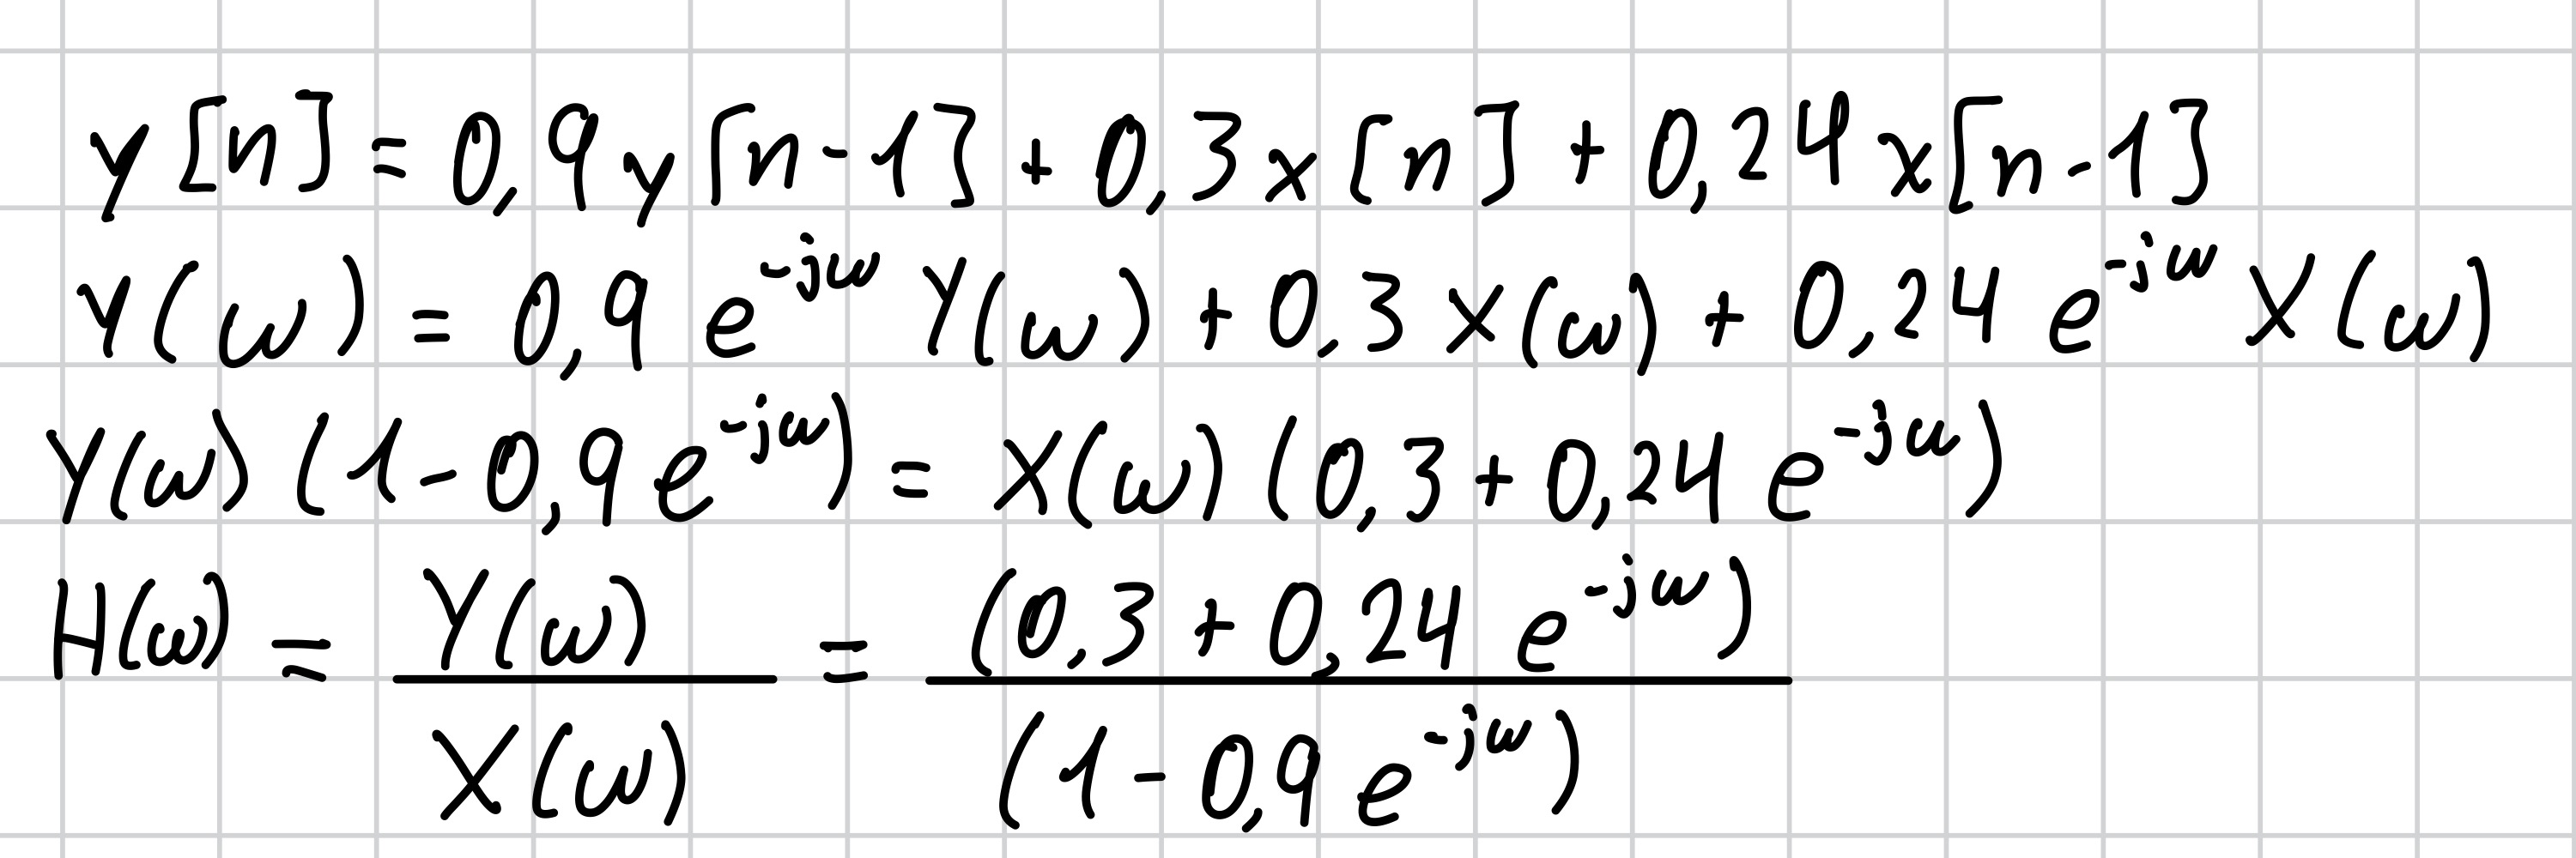 y[n] = 0,9y[n-1] + 0,3x[n] + 0,24x[n-1]
Y(ω) = 0,9 e^{-jω} Y(ω) + 0,3 X(ω) + 0,24 e^{-jω} X(ω)
Y(ω) (1 - 0,9 e^{-jω}) = X(ω) (0,3 + 0,24 e^{-jω})
H(ω) = \frac{Y(ω)}{X(ω)} = \frac{(0,3 + 0,24 e^{-jω})}{(1 - 0,9 e^{-jω})}